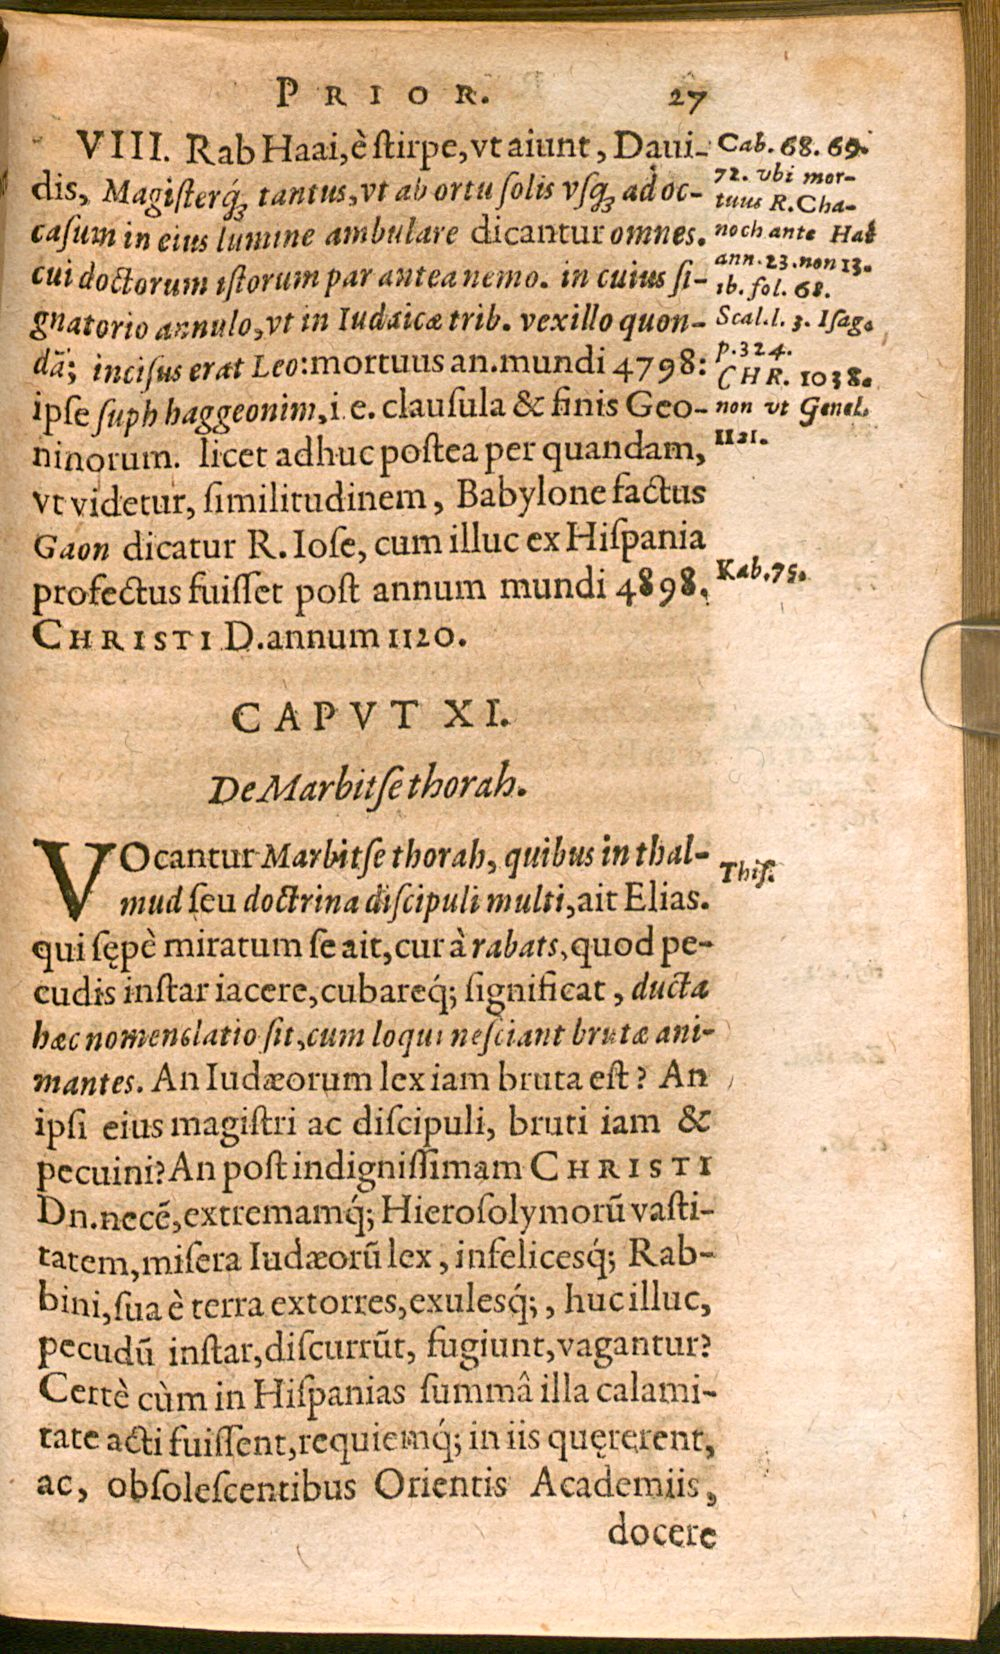 PRIOR. 27
VIII. Rab Haai, è ſtirpe, vt aiunt, Daui-
dis, Magiſterq́ꝫ tantus, vt ab ortu ſolis vſqꝫ ad oc-
caſum in eius lumine ambulare dicantur omnes.
cui doctorum iſtorum par antea nemo. in cuius ſi-
gnatorio annulo, vt in Iudaicæ trib. vexillo quon-
dā; inciſus erat Leo: mortuus an. mundi 4798:
ipſe ſuph haggeonim, i. e. clauſula & finis Geo-
ninorum. licet adhuc poſtea per quandam,
vt videtur, ſimilitudinem, Babylone factus
Gaon dicatur R. Ioſe, cum illuc ex Hiſpania
profectus fuiſſet poſt annum mundi 4898.
CHRISTI D. annum 1120.
Cab. 68. 69.
72. vbi mor-
tuus R. Cha-
noch ante Hai
ann. 23. non 13.
ib. fol. 68.
Scal. l. 3. Iſag.
p. 324.
CHR. 1038.
non vt Genel.
1121.
Kab. 75.
CAPVT XI.
De Marbitſe thorah.
VOcantur Marbitſe thorah, quibus in thal-
mud ſeu doctrina diſcipuli multi, ait Elias.
qui ſępè miratum ſe ait, cur à rabats, quod pe-
cudis inſtar iacere, cubareq́; ſignificat, ducta
hæc nomenclatio ſit, cum loqui neſciant brutæ ani-
mantes. An Iudæorum lex iam bruta eſt? An
ipſi eius magiſtri ac diſcipuli, bruti iam &
pecuini? An poſt indigniſſimam CHRISTI
Dn. necē, extremamq́; Hieroſolymorū vaſti-
tatem, miſera Iudæorū lex, infelicesq́; Rab-
bini, ſua è terra extorres, exulesq́;, huc illuc,
pecudū inſtar, diſcurrūt, fugiunt, vagantur?
Certè cùm in Hiſpanias ſummâ illa calami-
tate acti fuiſſent, requiemq́; in iis quęrerent,
ac, obſoleſcentibus Orientis Academiis,
docere
Thiſ.